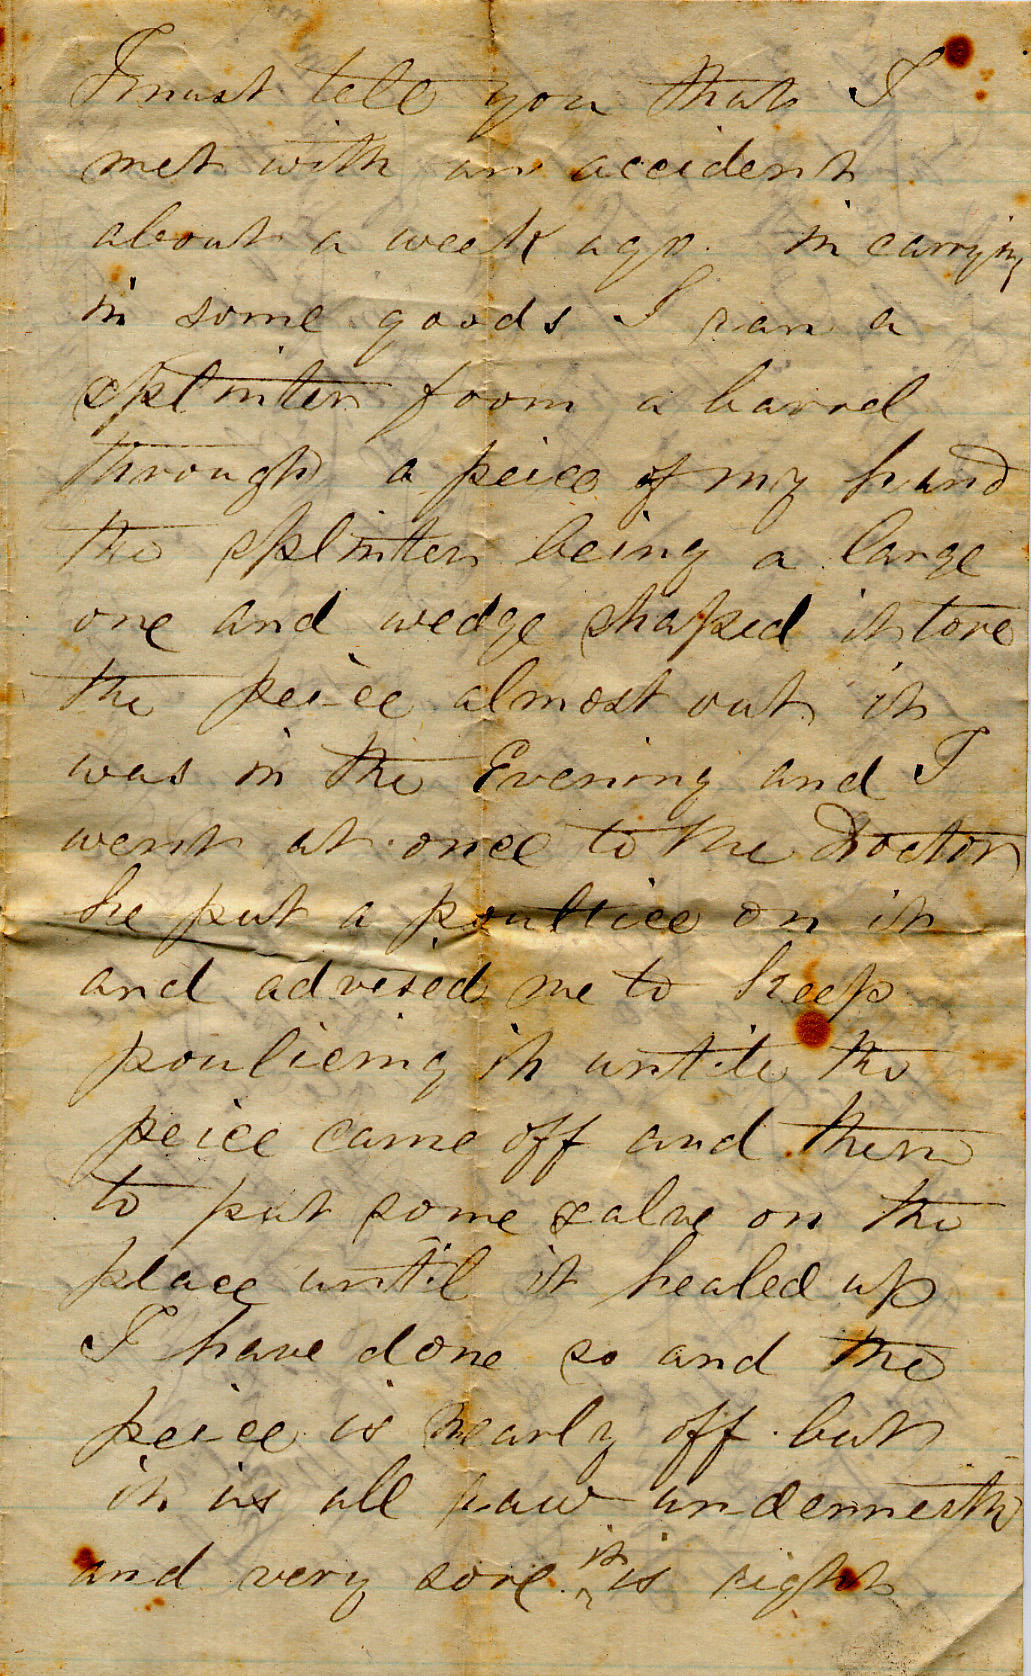 I must tell you that I
met with an accident
about a week ago. in carrying
in some goods I ran a
splinter from a barrel
through a peice of my hand
the splinter being a large
one and wedge shaped it tore
the peice almost out it
was in the Evening and I
went at once to the Doctor
he put a poultice on it
and advised me to keep
poulicing it untile the
peice came off and then
to put some salve on the
place until it healed up
I have done so and the
peice is nearly off but
it is all raw underneath
and very sore. it is right